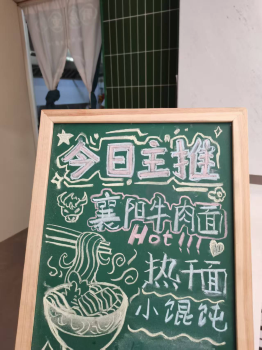 今日主推
襄阳牛肉面
Hot!!!
热干面
小馄饨